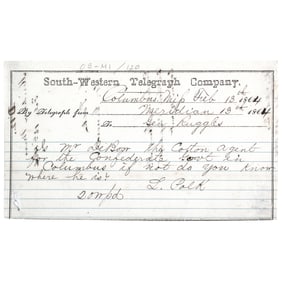 CS-M1/120
South-Western Telegraph Company.
Columbus Mip Feb 13th 1864
By Telegraph from Meridian 13th 1864
Gen Ruggles
Is Mr DeBow the Cotton agent
for the Confederate Govt in
Columbus if not do you know
where he is?
L. Polk
20 wpd